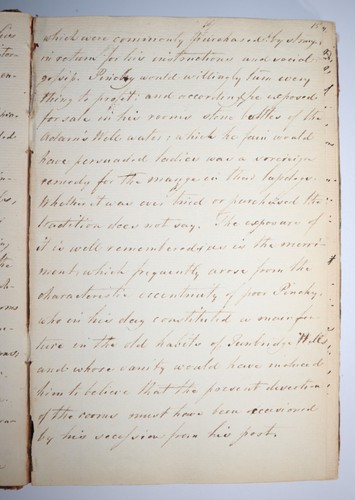 which were commonly purchased by strangers
in return for his instructions and social
gossip. Pinchy would willingly turn every
thing to profit: and accordingly he exposed
for sale in his rooms stone bottles of the
Adam's Well water; which he fain would
have persuaded ladies was a sovereign
remedy for the mange in their lapdogs.
Whether it was ever tried or purchased the
tradition does not say. The exposure of
it is well remembered; as is the merri-
ment which frequently arose from the
characteristic eccentricity of poor Pinchy,
who in his day constituted a main fea-
ture in the old habits of Tunbridge Wells
and whose vanity would have induced
him to believe that the present desertion
of the rooms must have been occasioned
by his secession from his post.